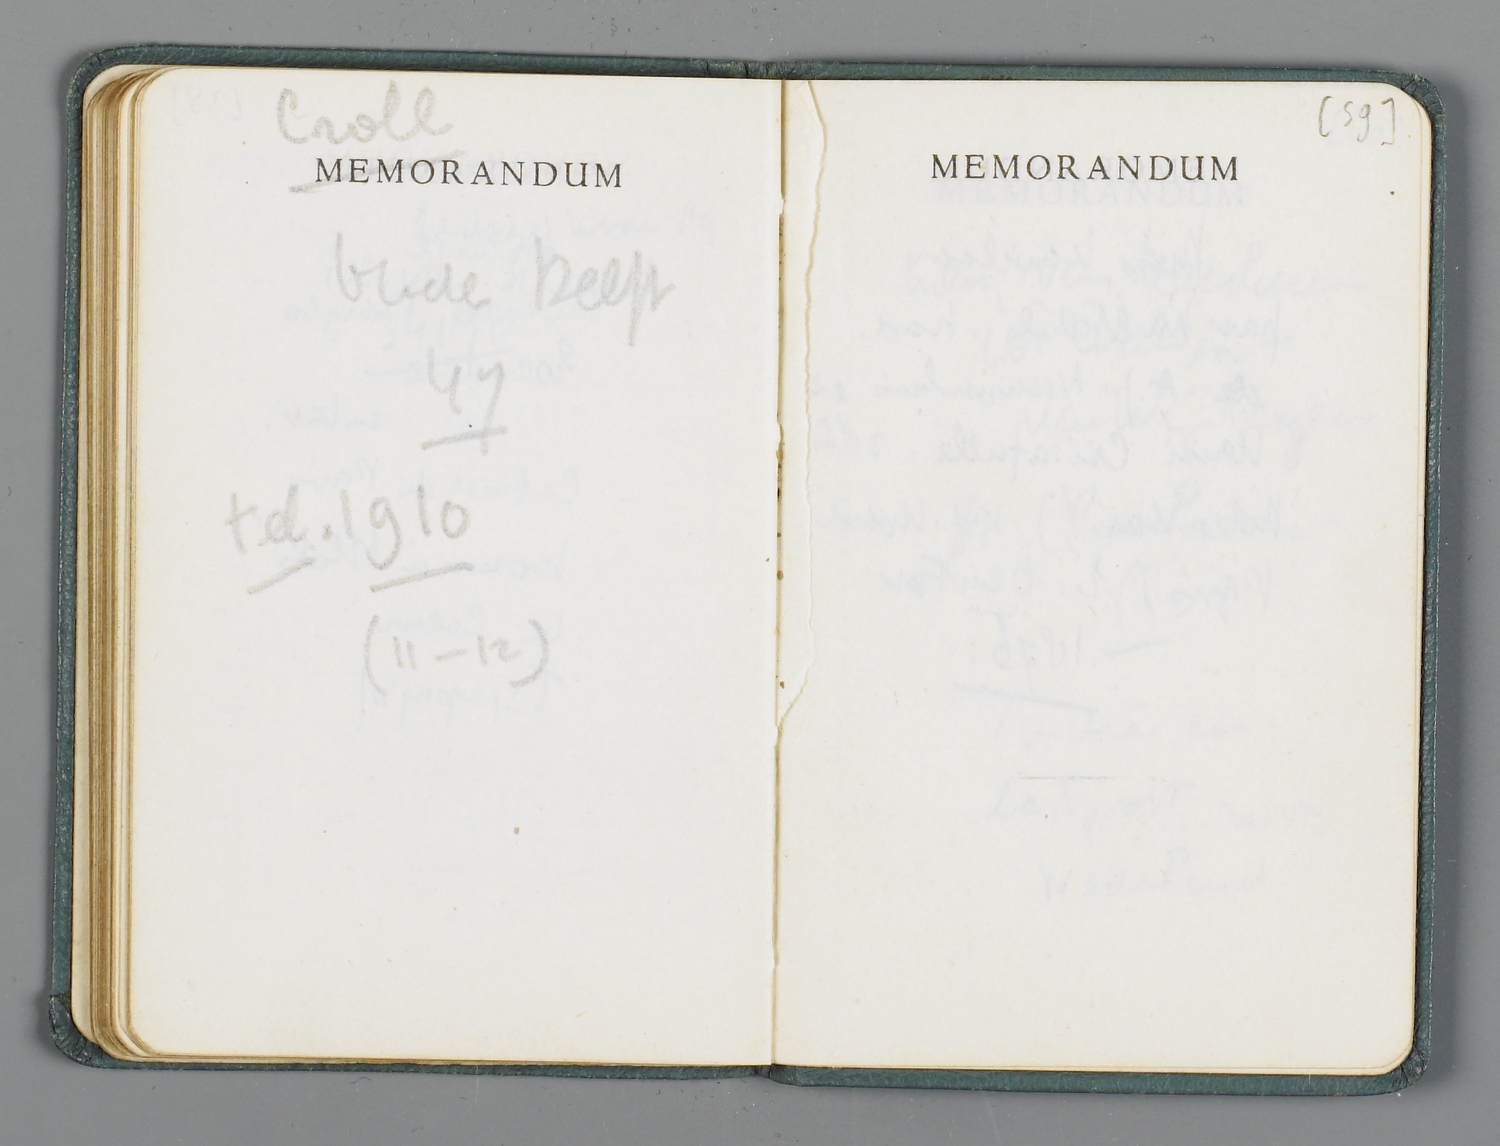 Croll
MEMORANDUM
Oude Delft
47
tel. 1910
(11-12)
[59]
MEMORANDUM